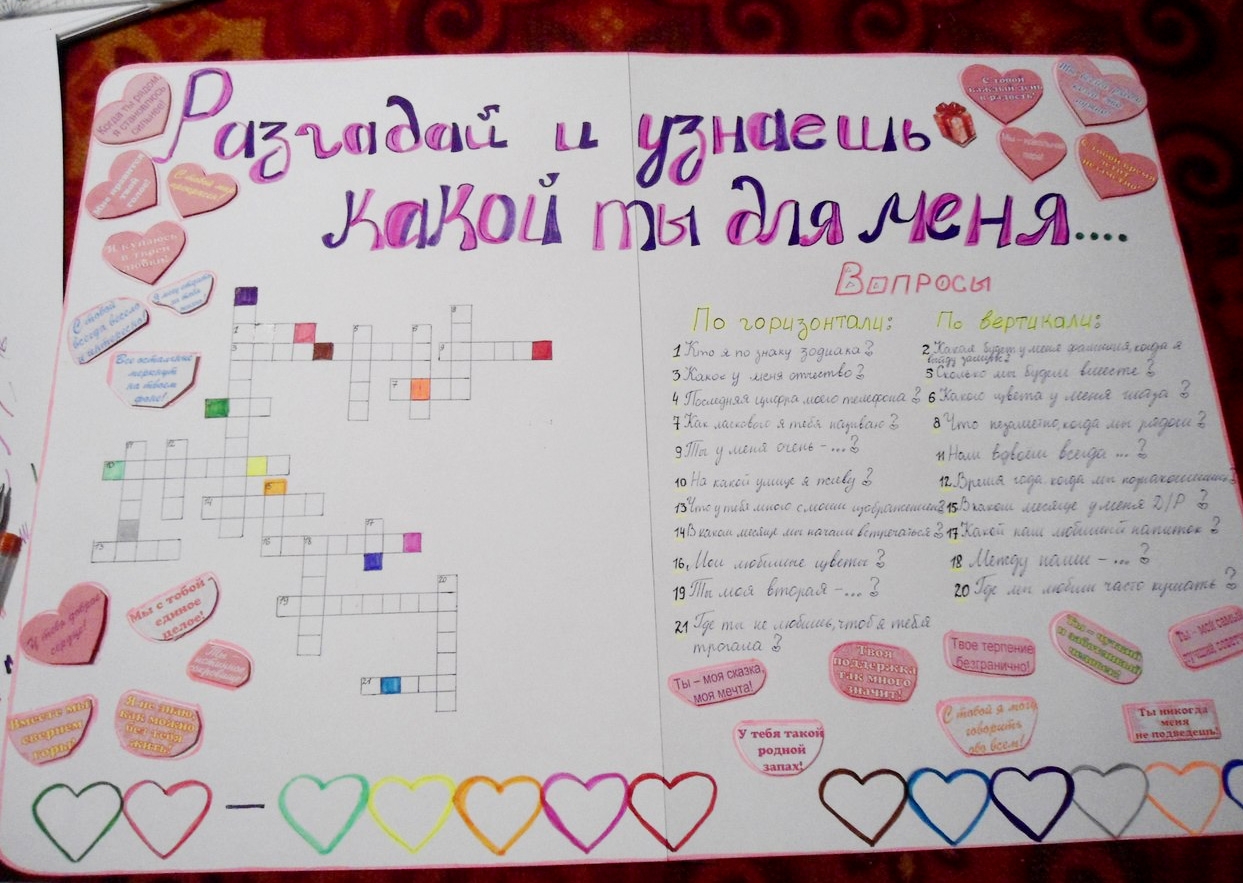 Разгадай и узнаешь
какой ты для меня....
Когда ты рядом,
я становлюсь
сильнее!
С тобой
каждый день
в радость!
Мне нравится
твой
голос!
Я купаюсь
в твоей
любви!
С тобой
всегда весело
и интересно!
Все остальные
меркнут
на твоем
фоне!
Вопросы
По горизонтали:
1 Кто я по знаку зодиака?
3 Какое у меня отчество?
4 Последняя цифра моего телефона?
7 Как ласково я тебя называю?
9 Ты у меня очень - ...?
10 На какой улице я живу?
13 Что у тебя много с моим изображением?
14 В каком месяце мы начали встречаться?
16 Мои любимые цветы?
19 Ты моя вторая - ...?
21 Где ты не любишь, чтоб я тебя
трогала?
По вертикали:
2 Какая будет у меня фамилия, когда я
выйду замуж?
5 Сколько мы будем вместе?
6 Какого цвета у меня глаза?
8 Что незаметно, когда мы рядом?
11 Нам вдвоём всегда ...?
12 Время года, когда мы познакомились?
15 В каком месяце у меня Д/Р?
17 Какой наш любимый напиток?
18 Между нами - ...?
20 Где мы любим часто кушать?
У тебя доброе
сердце!
Мы с тобой
единое
целое!
Ты -
сокровище!
Вместе мы
свернем
горы!
Я не знаю,
как можно
без тебя
жить!
Ты – моя сказка,
моя мечта!
Твоя
поддержка
так много
значит!
Твое терпение
безгранично!
Ты - чуткий
и заботливый
Ты - мой самый
лучший
У тебя такой
родной
запах!
С тобой я могу
говорить
обо всем!
Ты никогда
меня
не подведешь!